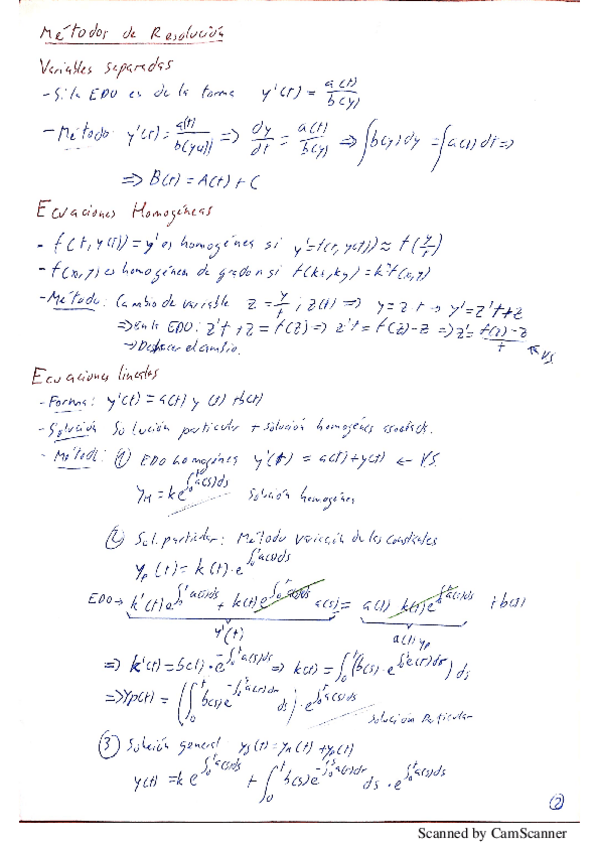 Métodos de Resolución
Variables separadas
- Si la EDO es de la forma y'(t) = a(t)/b(y)
- Método: y'(t) = a(t)/b(y(t)) => dy/dt = a(t)/b(y) => ∫b(y)dy = ∫a(t)dt =>
=> B(t) = A(t) + C
Ecuaciones Homogéneas
- f(t, y(t)) = y' es homogénea si y' = f(t, y(t)) ≈ f(y/t)
- f(x,y) es homogénea de grado n si f(kx, ky) = k^n f(x,y)
- Método: Cambio de variable z = y/t ; z(t) => y = z t -> y' = z't + z
=> En la EDO: z't + z = f(z) => z't = f(z) - z => z' = (f(z) - z)/t ← V.S.
-> Deshacer el cambio.
Ecuaciones lineales
- Forma: y'(t) = a(t) y(t) + b(t)
- Solución Solución particular + solución homogénea asociada.
- Método: (1) EDO homogénea y'(t) = a(t) + y(t) ← V.S.
y_H = k e^{∫_0^t a(s)ds} Solución homogénea
(2) Sol. particular: Método variación de las constantes
y_p(t) = k(t) · e^{∫_0^t a(s)ds}
EDO -> k'(t) e^{∫_0^t a(s)ds} + k(t) e^{∫_0^t a(s)ds} a(s) = a(t) k(t) e^{∫_0^t a(s)ds} + b(t)
y'(t) a(t) y_p
=> k'(t) = b(t) · e^{-∫_0^t a(s)ds} => k(t) = ∫_0^t (b(s) · e^{-∫_0^s a(r)dr}) ds
=> Yp(t) = (∫_0^t b(s) e^{-∫_0^s a(r)dr} ds) · e^{∫_0^t a(s)ds}
Solución Particular
(3) Solución general: y_g(t) = y_h(t) + y_p(t)
y(t) = k e^{∫_0^t a(s)ds} + ∫_0^t b(s) e^{-∫_0^s a(r)dr} ds · e^{∫_0^t a(s)ds}
(2)
Scanned by CamScanner